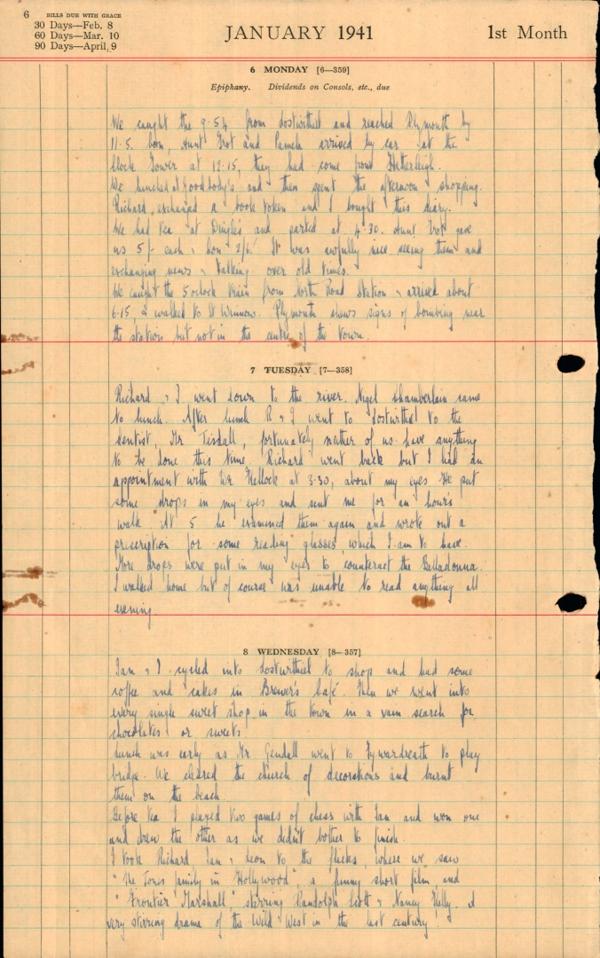 6 BILLS DUE WITH GRACE
30 Days—Feb. 8
60 Days—Mar. 10
90 Days—April, 9
JANUARY 1941
1st Month
6 MONDAY [6—359]
Epiphany. Dividends on Consols, etc., due
We caught the 9.54 from Lostwithiel and reached Plymouth by
11.5. Leon, Aunt Trot and Pamela arrived by car at the
Clock Tower at 12.15, they had come from Hatherleigh.
We lunched at Goodbody's and then spent the afternoon shopping.
Richard exchanged a book token and I bought this diary.
We had tea at Dingles and parted at 4.30. Aunt Trot gave
us 5/- each, Leon 2/6. It was awfully nice seeing them and
exchanging news & talking over old times.
We caught the 5 oclock train from North Road Station & arrived about
6.15 & walked to St Winnow. Plymouth shows signs of bombing near
the station but not in the centre of the town.
7 TUESDAY [7—358]
Richard & I went down to the river. Nigel Chamberlain came
to lunch. After lunch R & I went to Lostwithiel to the
dentist, Mr Tisdall, fortunately neither of us have anything
to be done this time. Richard went back but I had an
appointment with Dr at 3.30, about my eyes. He put
some drops in my eyes and sent me for an hour's
walk. At 5 he examined them again and wrote out a
prescription for some reading glasses which I am to have.
More drops were put in my eyes to counteract the Belladonna.
I walked home but of course was unable to read anything all
evening.
8 WEDNESDAY [8—357]
Ian & I cycled into Lostwithiel to shop and had some
coffee and cakes in Brewer's Café. Then we went into
every single sweet shop in the town in a vain search for
chocolates or sweets
Lunch was early as Mr Gendall went to Tywardreath to play
bridge. We cleared the church of decorations and burnt
them on the beach
Before tea I played two games of chess with Ian and won one
and drew the other as we didn't bother to finish
I took Richard, Ian & Leon to the flicks, where we saw
"The Jones family in Hollywood", a funny short film and
"Frontier Marshall," starring Randolph Scott & Nancy Kelly. A
very stirring drama of the Wild West in the last century.